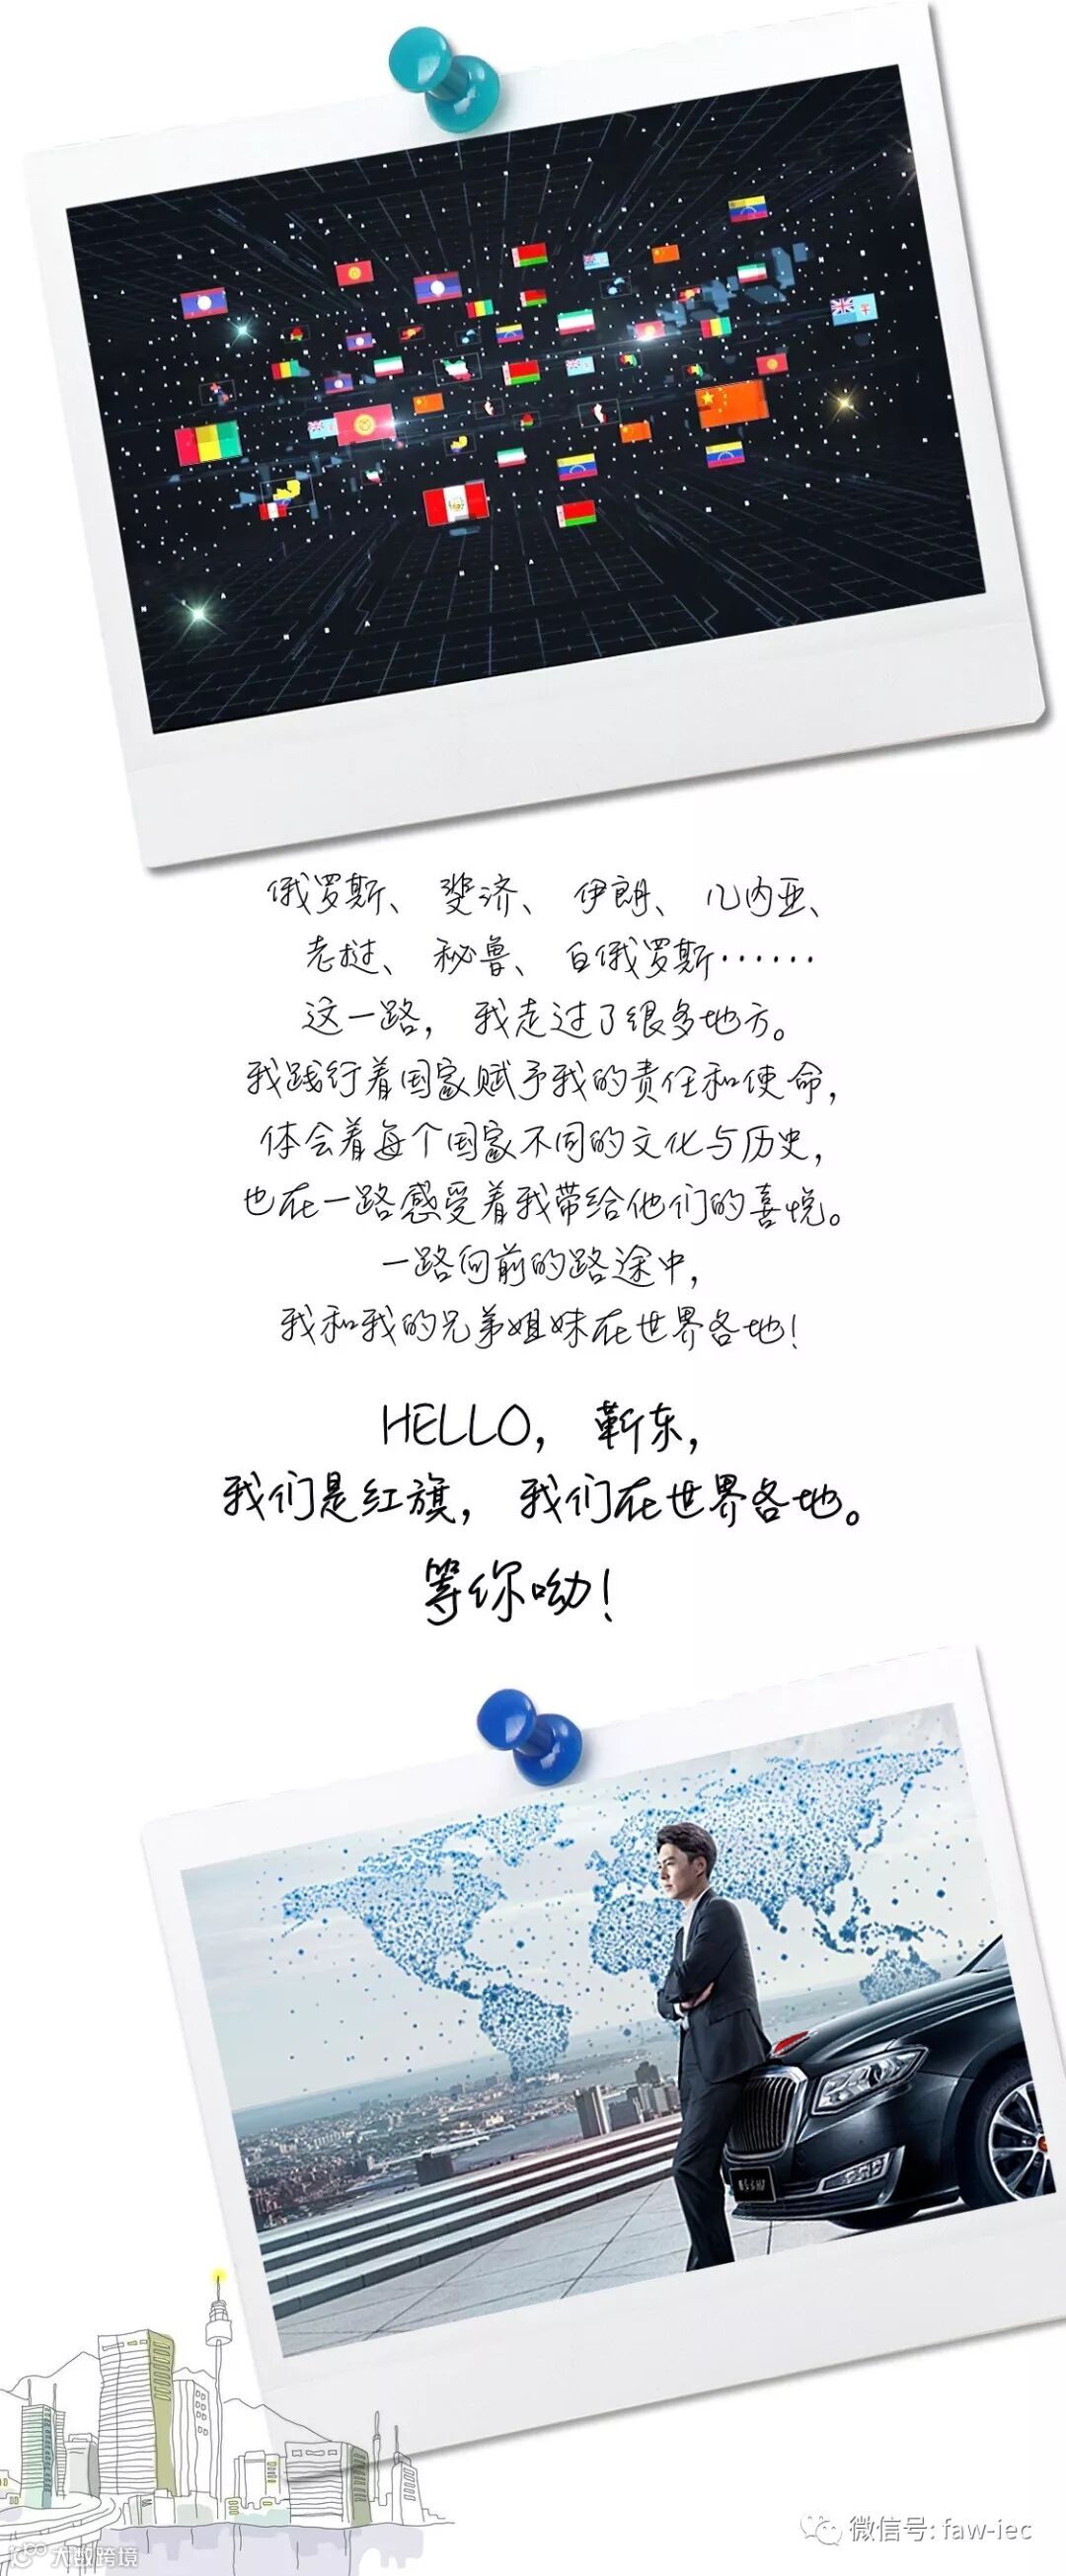 俄罗斯、 斐济、 伊朗、 几内亚、
老挝、 秘鲁、 白俄罗斯……
这一路， 我走过了很多地方。
我践行着国家赋予我的责任和使命，
体会着每个国家不同的文化与历史，
也在一路感受着我带给他们的喜悦。
一路向前的路途中，
我和我的兄弟姐妹在世界各地！
HELLO， 靳东，
我们是红旗， 我们在世界各地。
等你呦！
微信号: faw-iec
大数跨境